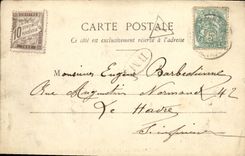 CARTE POSTALE
Ce côté est exclusivement réservé à l'adresse
10
Monsieur Eugène Barbedienne
Rue Augustin Normand 42
Le Havre